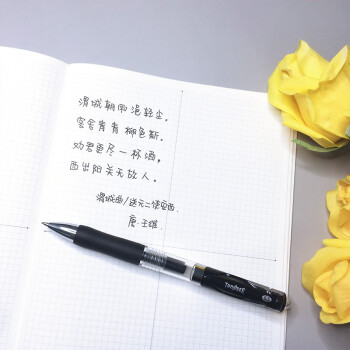 渭城朝雨浥轻尘，
客舍青青柳色新。
劝君更尽一杯酒，
西出阳关无故人。
渭城曲/送元二使安西
唐·王维